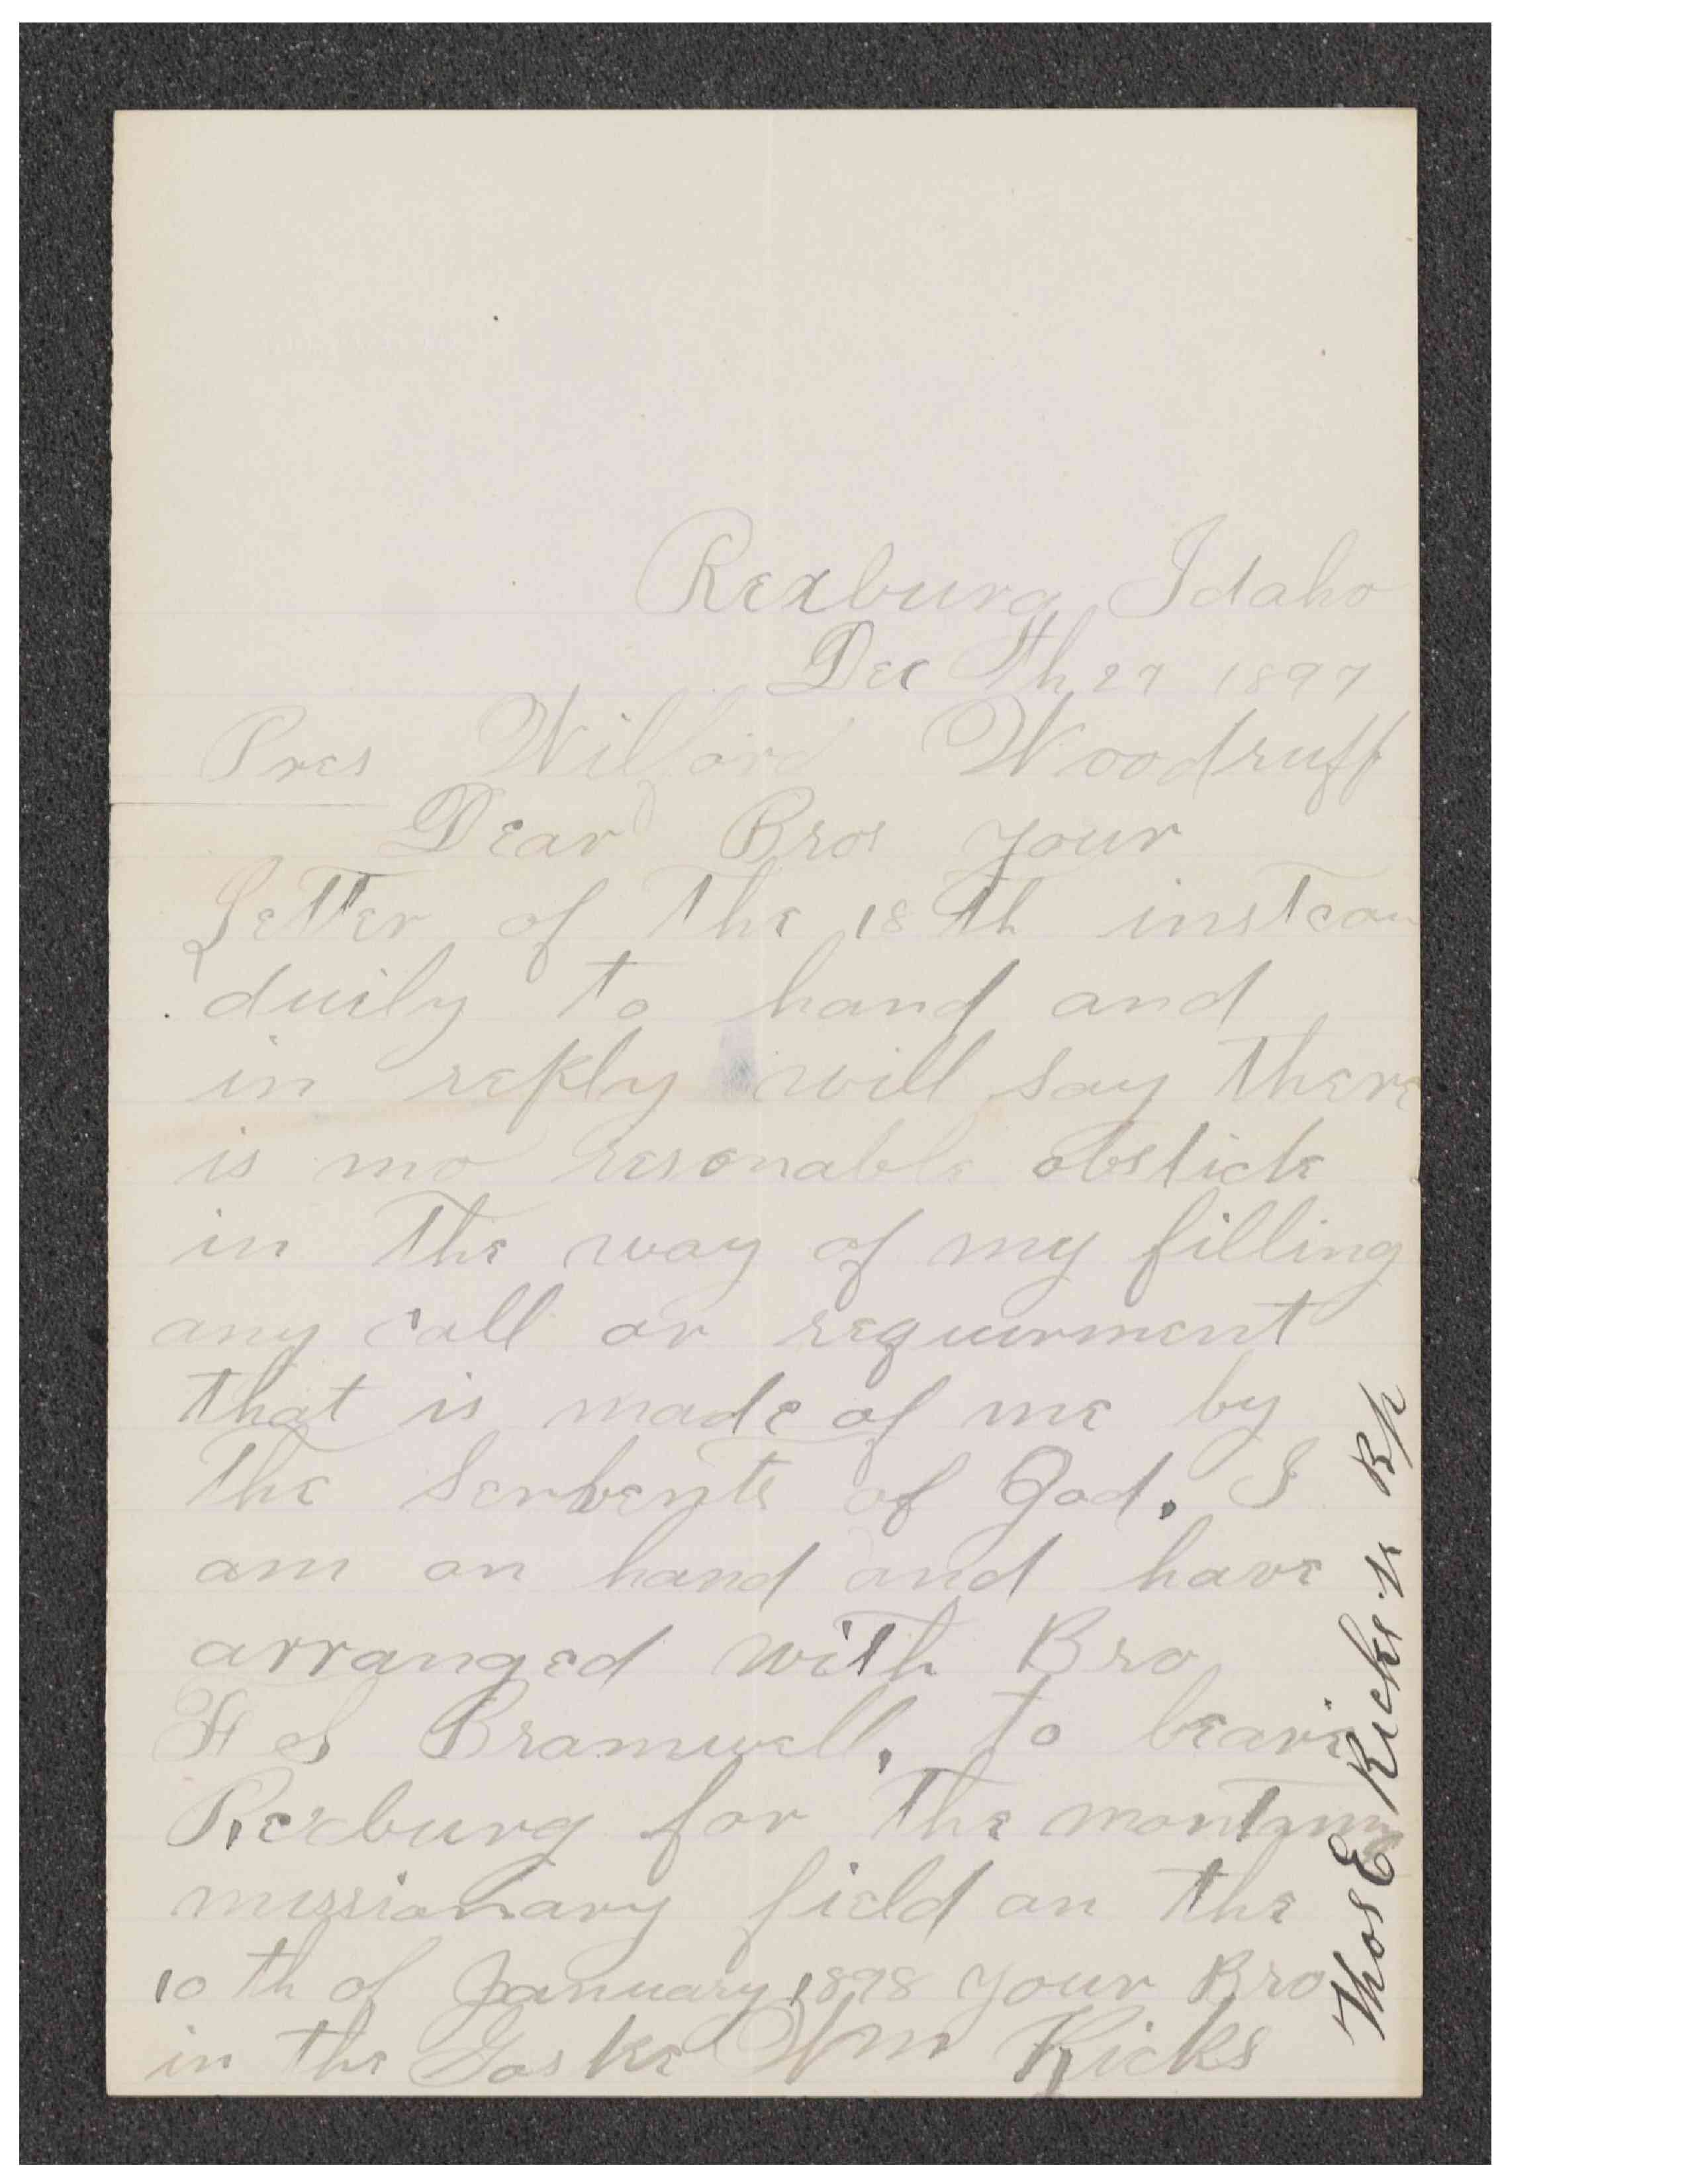 Rexburg Idaho
Dec Th 27 1897
Pres Wilford Woodruff
Dear Bro your
Letter of the 18 th instean
duily to hand and
in reply will say there
is mo resonable obstick
in the way of my filling
any call or requirment
that is made of me by
the Servents of God. I
am on hand and have
arranged with Bro
Bramwell, to leave
Rexburg for the montana
missionary field on the
10 th of January 1898 your Bro
in the Goskel Wm Ricks
Thos E Ricks Jr Bp